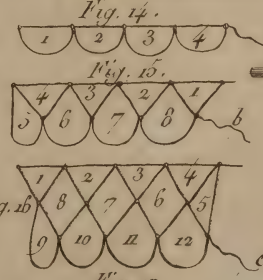 Fig. 14.
1 2 3 4
Fig. 15.
4 3 2 1
5 6 7 8 b
1 2 3 4
g. 16 8 7 6 5
9 10 11 12 c